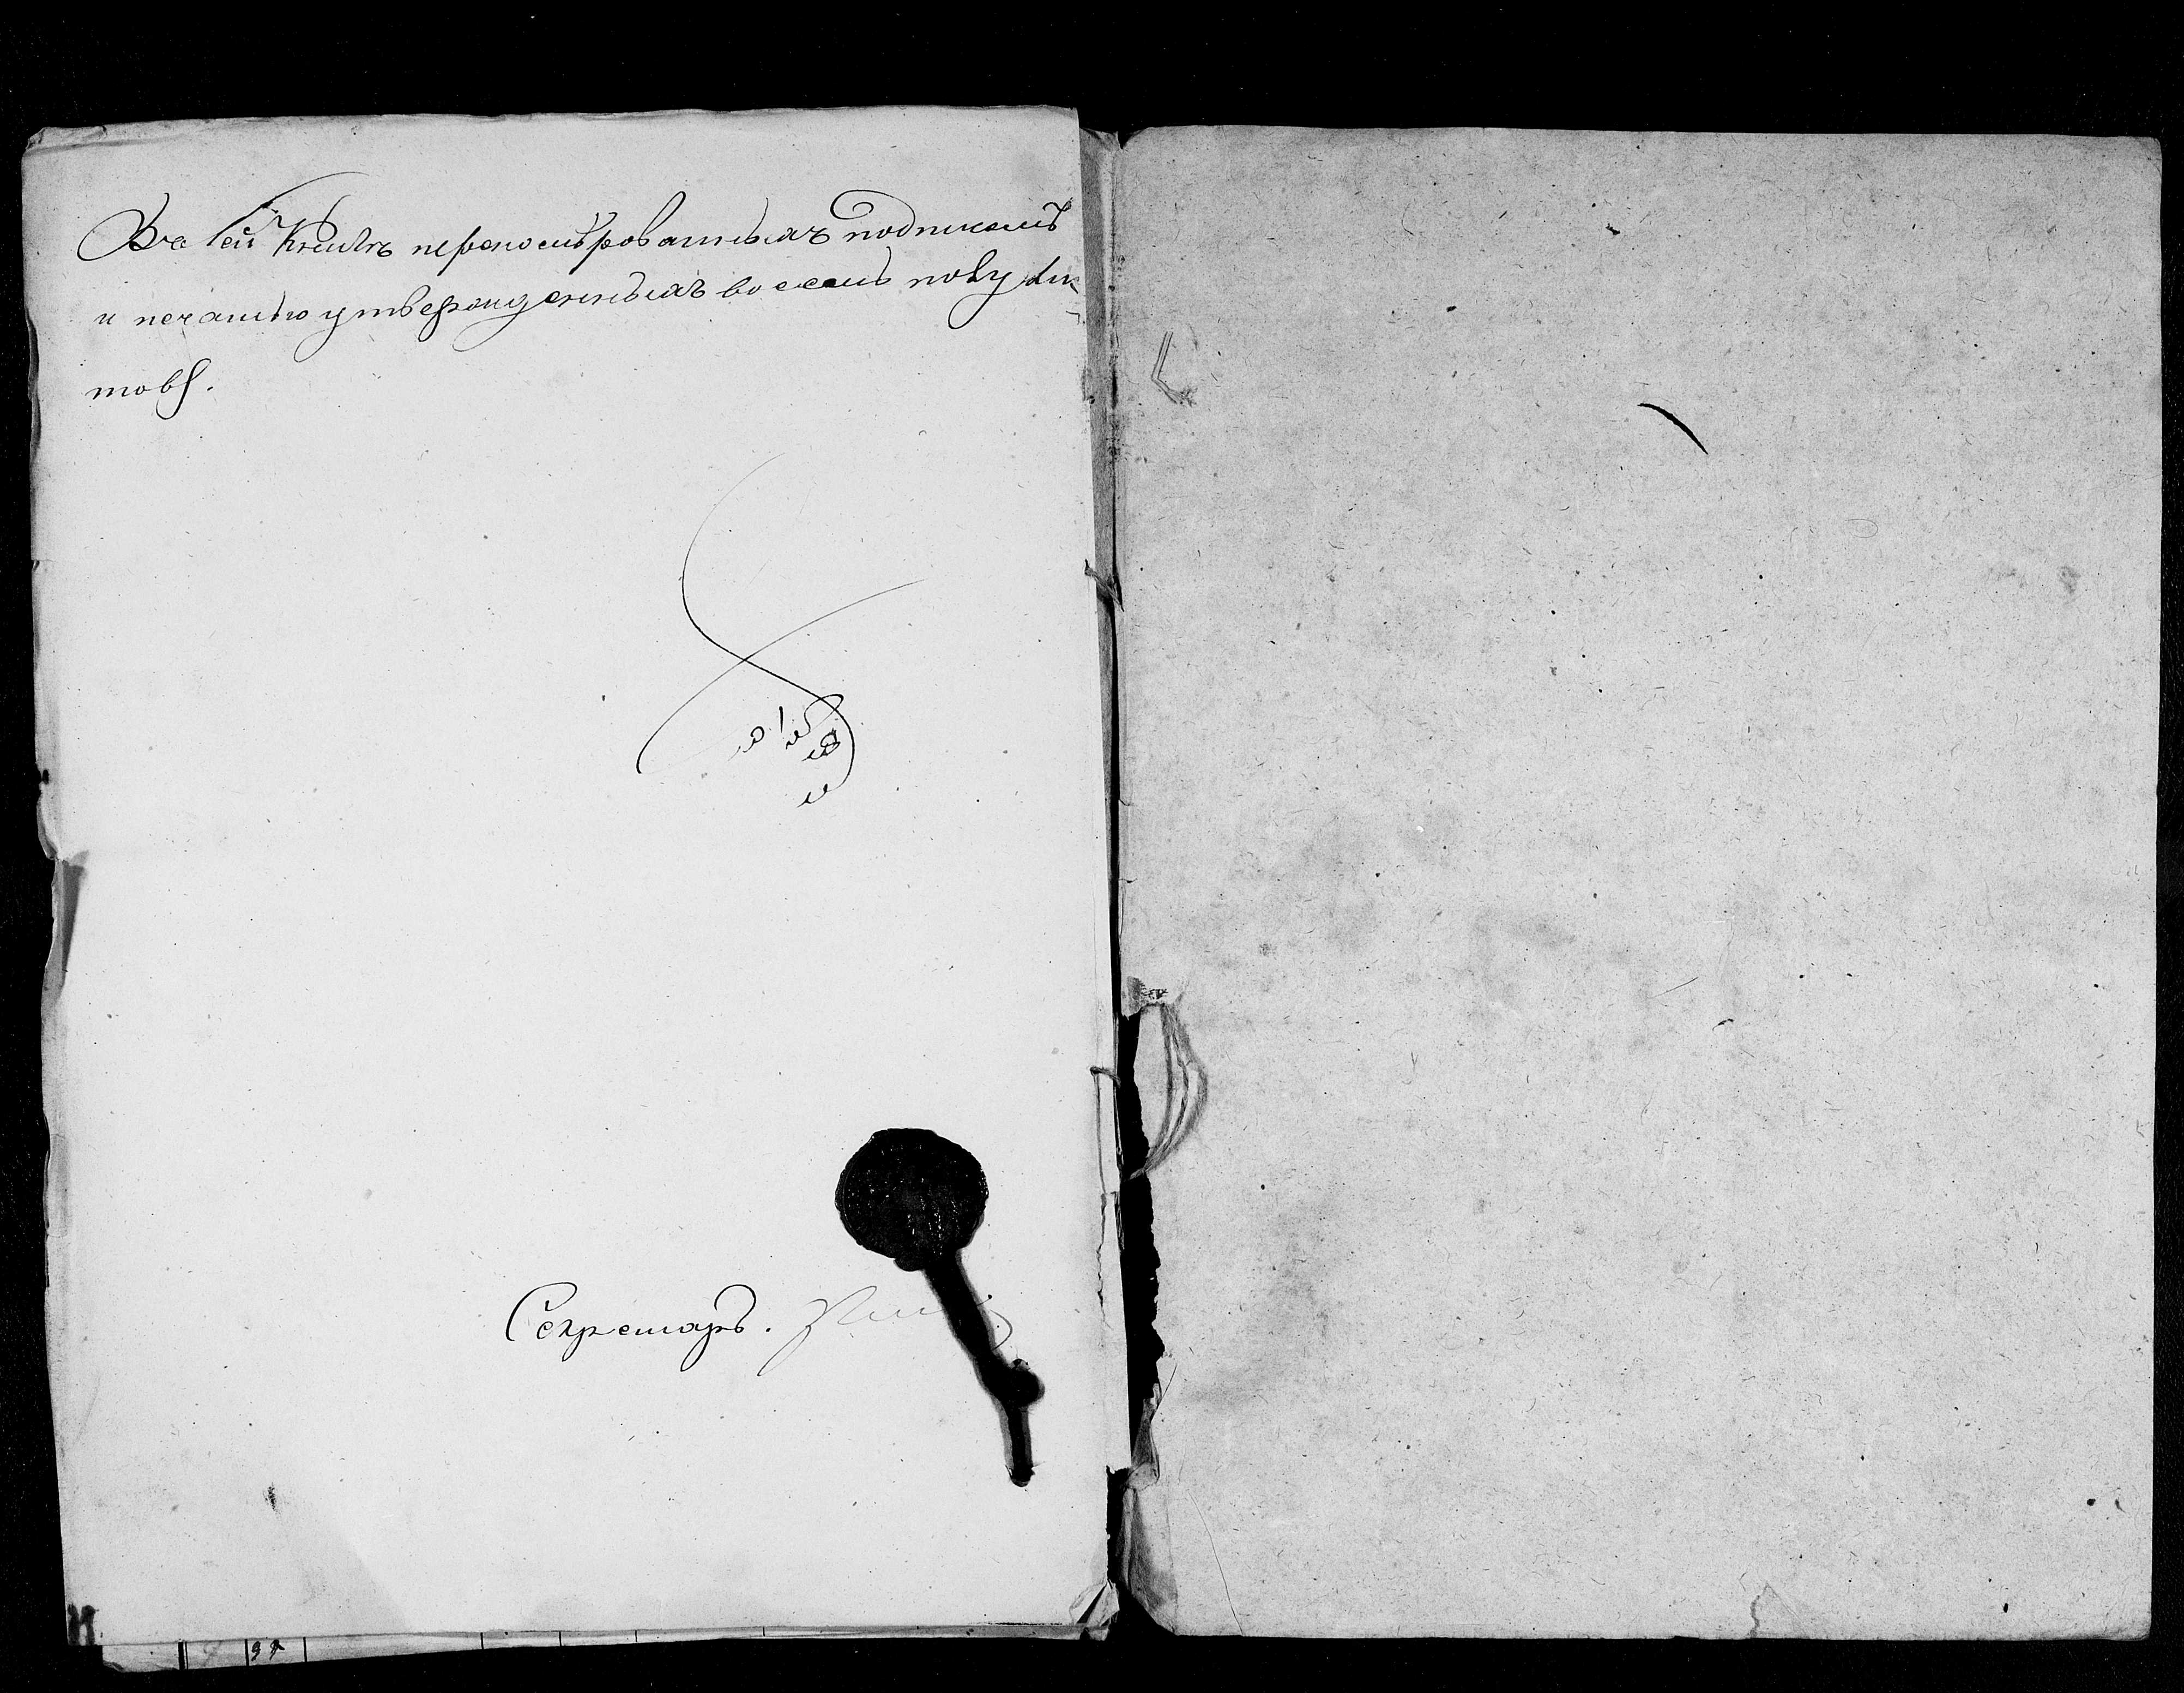 Въ сей Книгѣ переномерованныхъ подписомъ
и печатью утвержденныхъ восемь полулис
товъ.
Секретарь.
37